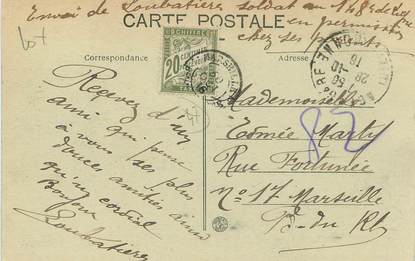 Envoi de Loubatières soldat au 148e de ligne
en permission
chez ses parents
lot
CARTE POSTALE
Correspondance
Adresse
20 CENTIMES
Recevez d'un
ami qui pense
à vous ses plus
douces amitiés ainsi
qu'un cordial
Bonjour
Loubatières
Mademoiselle
Esmée Marty
Rue Fortunée
No 17 Marseille
B-du Rh
82